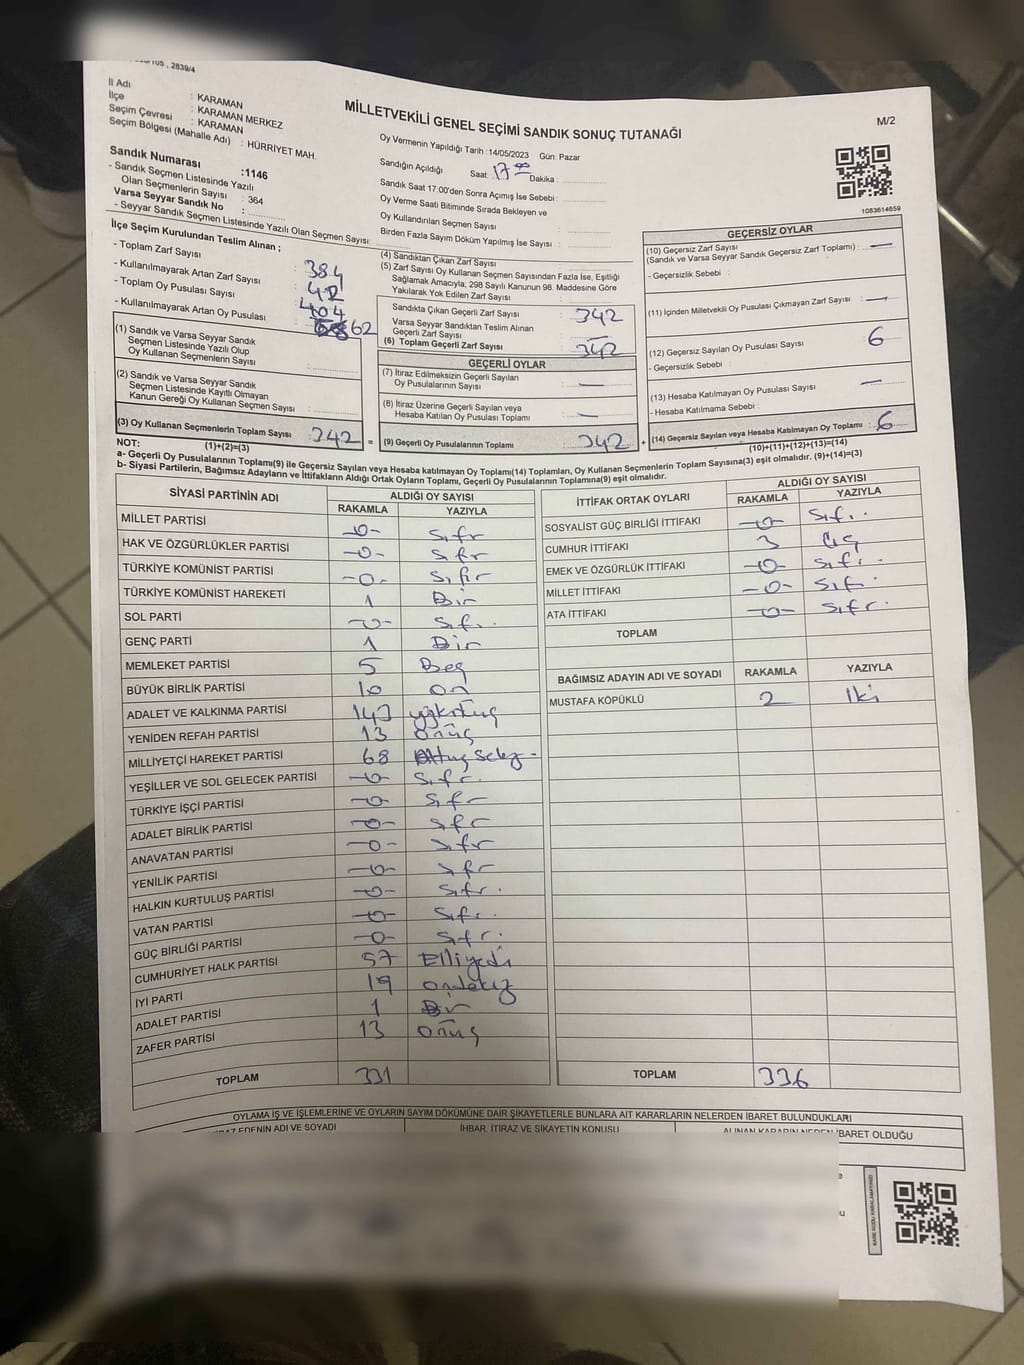 , 2839/4
İl Adı : KARAMAN
İlçe : KARAMAN MERKEZ
Seçim Çevresi : KARAMAN
Seçim Bölgesi (Mahalle Adı) : HÜRRİYET MAH.
MİLLETVEKİLİ GENEL SEÇİMİ SANDIK SONUÇ TUTANAĞI
M/2
Sandık Numarası :1146
- Sandık Seçmen Listesinde Yazılı
Olan Seçmenlerin Sayısı : 364
Varsa Seyyar Sandık No :
- Seyyar Sandık Seçmen Listesinde Yazılı Olan Seçmen Sayısı:
Oy Vermenin Yapıldığı Tarih :14/05/2023 Gün: Pazar
Sandığın Açıldığı Saat: 17 00 Dakika :
Sandık Saat 17:00'den Sonra Açımış İse Sebebi :
Oy Verme Saati Bitiminde Sırada Bekleyen ve
Oy Kullandırılan Seçmen Sayısı :
Birden Fazla Sayım Döküm Yapılmış İse Sayısı :
1083614659
İlçe Seçim Kurulundan Teslim Alınan ;
- Toplam Zarf Sayısı : 384
- Kullanılmayarak Artan Zarf Sayısı : 42
- Toplam Oy Pusulası Sayısı : 404
- Kullanılmayarak Artan Oy Pusulası : 62
(1) Sandık ve Varsa Seyyar Sandık
Seçmen Listesinde Yazılı Olup
Oy Kullanan Seçmenlerin Sayısı :
(2) Sandık ve Varsa Seyyar Sandık
Seçmen Listesinde Kayıtlı Olmayan
Kanun Gereği Oy Kullanan Seçmen Sayısı :
(3) Oy Kullanan Seçmenlerin Toplam Sayısı : 342
(1)+(2)=(3)
(4) Sandıktan Çıkan Zarf Sayısı :
(5) Zarf Sayısı Oy Kullanan Seçmen Sayısından Fazla İse, Eşitliği
Sağlamak Amacıyla, 298 Sayılı Kanunun 98. Maddesine Göre
Yakılarak Yok Edilen Zarf Sayısı :
Sandıkta Çıkan Geçerli Zarf Sayısı : 342
Varsa Seyyar Sandıktan Teslim Alınan
Geçerli Zarf Sayısı : —
(6) Toplam Geçerli Zarf Sayısı : 342
GEÇERLİ OYLAR
(7) İtiraz Edilmeksizin Geçerli Sayılan
Oy Pusulalarının Sayısı : —
(8) İtiraz Üzerine Geçerli Sayılan veya
Hesaba Katılan Oy Pusulası Toplamı : —
= (9) Geçerli Oy Pusulalarının Toplamı : 342
GEÇERSİZ OYLAR
(10) Geçersiz Zarf Sayısı
(Sandık ve Varsa Seyyar Sandık Geçersiz Zarf Toplamı) : —
- Geçersizlik Sebebi :
(11) İçinden Milletvekili Oy Pusulası Çıkmayan Zarf Sayısı : —
(12) Geçersiz Sayılan Oy Pusulası Sayısı : 6
- Geçersizlik Sebebi :
(13) Hesaba Katılmayan Oy Pusulası Sayısı : —
- Hesaba Katılmama Sebebi :
+ (14) Geçersiz Sayılan veya Hesaba Katılmayan Oy Toplamı : 6
(10)+(11)+(12)+(13)=(14)
NOT:
a- Geçerli Oy Pusulalarının Toplamı(9) ile Geçersiz Sayılan veya Hesaba katılmayan Oy Toplamı(14) Toplamları, Oy Kullanan Seçmenlerin Toplam Sayısına(3) eşit olmalıdır. (9)+(14)=(3)
b- Siyasi Partilerin, Bağımsız Adayların ve İttifakların Aldığı Ortak Oyların Toplamı, Geçerli Oy Pusulalarının Toplamına(9) eşit olmalıdır.
SİYASİ PARTİNİN ADI ALDIĞI OY SAYISI
RAKAMLA YAZIYLA
MİLLET PARTİSİ -0- Sıfır
HAK VE ÖZGÜRLÜKLER PARTİSİ -0- Sıfır
TÜRKİYE KOMÜNİST PARTİSİ -0- Sıfır
TÜRKİYE KOMÜNİST HAREKETİ 1 Bir
SOL PARTİ -0- Sıfır
GENÇ PARTİ 1 Bir
MEMLEKET PARTİSİ 5 Beş
BÜYÜK BİRLİK PARTİSİ 10 on
ADALET VE KALKINMA PARTİSİ 143
YENİDEN REFAH PARTİSİ 13 onüç
MİLLİYETÇİ HAREKET PARTİSİ 68
YEŞİLLER VE SOL GELECEK PARTİSİ -0- Sıfır
TÜRKİYE İŞÇİ PARTİSİ -0- Sıfır
ADALET BİRLİK PARTİSİ -0- Sıfır
ANAVATAN PARTİSİ -0- Sıfır
YENİLİK PARTİSİ -0- Sıfır
HALKIN KURTULUŞ PARTİSİ -0- Sıfır
VATAN PARTİSİ -0- Sıfır
GÜÇ BİRLİĞİ PARTİSİ -0- Sıfır
CUMHURİYET HALK PARTİSİ 57 Elliyedi
İYİ PARTİ 19
ADALET PARTİSİ 1 Bir
ZAFER PARTİSİ 13 onüç
TOPLAM 331
İTTİFAK ORTAK OYLARI ALDIĞI OY SAYISI
RAKAMLA YAZIYLA
SOSYALİST GÜÇ BİRLİĞİ İTTİFAKI -0- Sıfır
CUMHUR İTTİFAKI 3 üç
EMEK VE ÖZGÜRLÜK İTTİFAKI -0- Sıfır
MİLLET İTTİFAKI -0- Sıfır
ATA İTTİFAKI -0- Sıfır
TOPLAM
BAĞIMSIZ ADAYIN ADI VE SOYADI RAKAMLA YAZIYLA
MUSTAFA KÖPÜKLÜ 2 Iki
TOPLAM 336
OYLAMA İŞ VE İŞLEMLERİNE VE OYLARIN SAYIM DÖKÜMÜNE DAİR ŞİKAYETLERLE BUNLARA AİT KARARLARIN NELERDEN İBARET BULUNDUKLARI
EDENİN ADI VE SOYADI İHBAR, İTİRAZ VE ŞİKAYETİN KONUSU ALINAN KARARIN NEDEN İBARET OLDUĞU